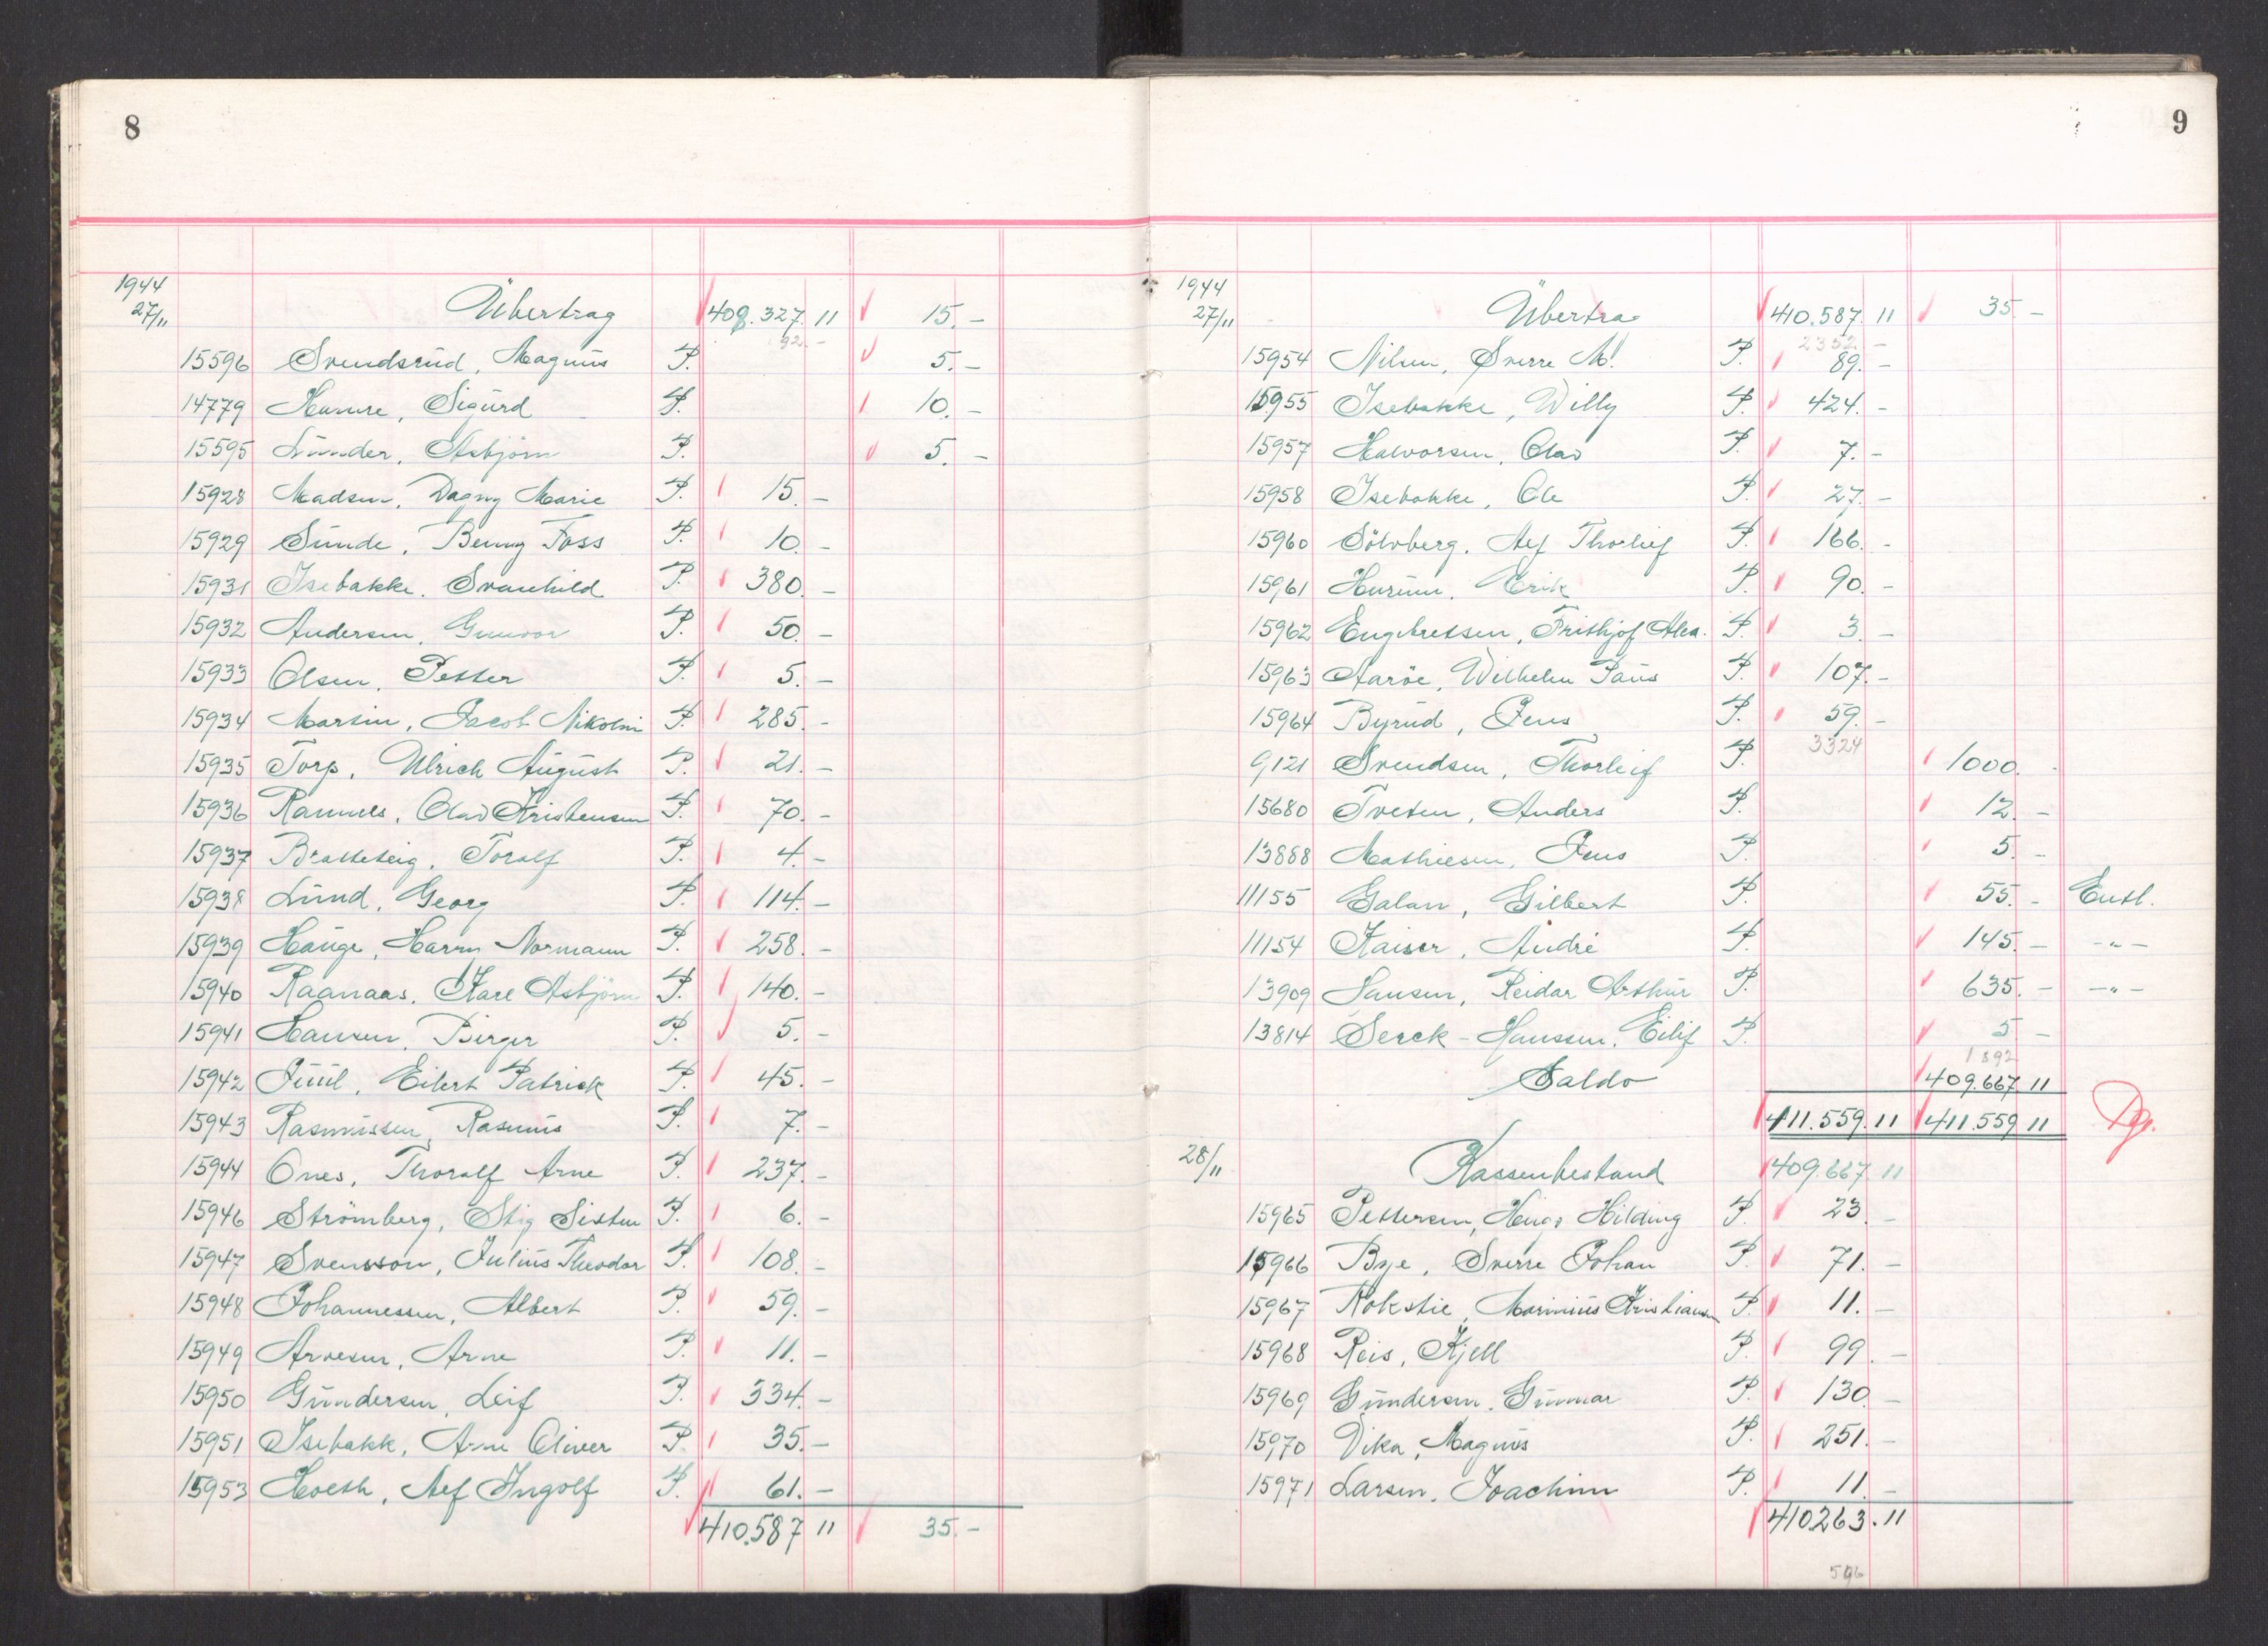 8
1944
27/11 Übertrag 408.327.11 15.-
92.-
15596 Svendsrud, Magnus P. 5.-
14779 Hamre, Sigurd P. 10.-
15595 Lunder, Asbjörn P. 5.-
15928 Madsen, Dagny Marie P. 15.-
15929 Sunde, Benny Foss P. 10.-
15931 Isebakke, Svanhild P. 380.-
15932 Andersen, Gunvor P. 50.-
15933 Olsen, Petter P. 5.-
15934 Martin, Jacob Nikolai P. 285.-
15935 Torp, Ulrich August P. 21.-
15936 Ramnes, Olav Kristensen P. 70.-
15937 Bratteteig, Toralf P. 4.-
15938 Lund, Georg P. 114.-
15939 Hauge, Harry Normann P. 258.-
15940 Raanaas, Kare Asbjörn P. 140.-
15941 Hansen, Birger P. 5.-
15942 Juul, Eilert Patrick P. 45.-
15943 Rasmussen, Rasmus P. 7.-
15944 Ones, Thoralf Arne P. 237.-
15946 Strömberg, Stig Sixten P. 6.-
15947 Svensson, Julius Theodor P. 108.-
15948 Johannessen, Albert P. 59.-
15949 Arnesen, Arne P. 11.-
15950 Gundersen, Leif P. 334.-
15951 Isebakk, Arne Oliver P. 35.-
15953 Hoeth, Alf Ingolf P. 61.-
410.587 11 35.-
9
1944
27/11 Übertrag 410.587.11 35.-
2352.-
15954 Nilsen, Sverre M. P. 89.-
15955 Isebakke, Willy P. 424.-
15957 Halvorsen, Olav P. 7.-
15958 Isebakke, Ole P. 27.-
15960 Sölvberg, Alf Thorleif P. 166.-
15961 Hurum, Erik P. 90.-
15962 Engebretsen, Frithjof Alex. P. 3.-
15963 Aaröe, Wilhelm Paus P. 107.-
15964 Byrud, Jens P. 59.-
3324
9121 Svendsen, Thorleif P. 1000.-
15680 Tveten, Anders P. 12.-
13888 Mathiesen, Jens P. 5.-
11155 Galan, Gilbert P. 55.- Entl.
11154 Kaiser, André P. 145.- -"-
13909 Jansen, Reidar Arthur P. 635.- -"-
13814 Serck-Hanssen, Eilif P. 5.-
1892
Saldo 409.667 11
411.559.11 411.559 11
28/11 Kassenbestand 409.667 11
15965 Pettersen, Hugo Hilding P. 23.-
15966 Bye, Sverre Johan P. 71.-
15967 Rokstie, Marinius Kristiansen P. 11.-
15968 Reis, Kjell P. 99.-
15969 Gundersen, Gunnar P. 130.-
15970 Vika, Magnus P. 251.-
15971 Larsen, Joachim P. 11.-
410263.11
596